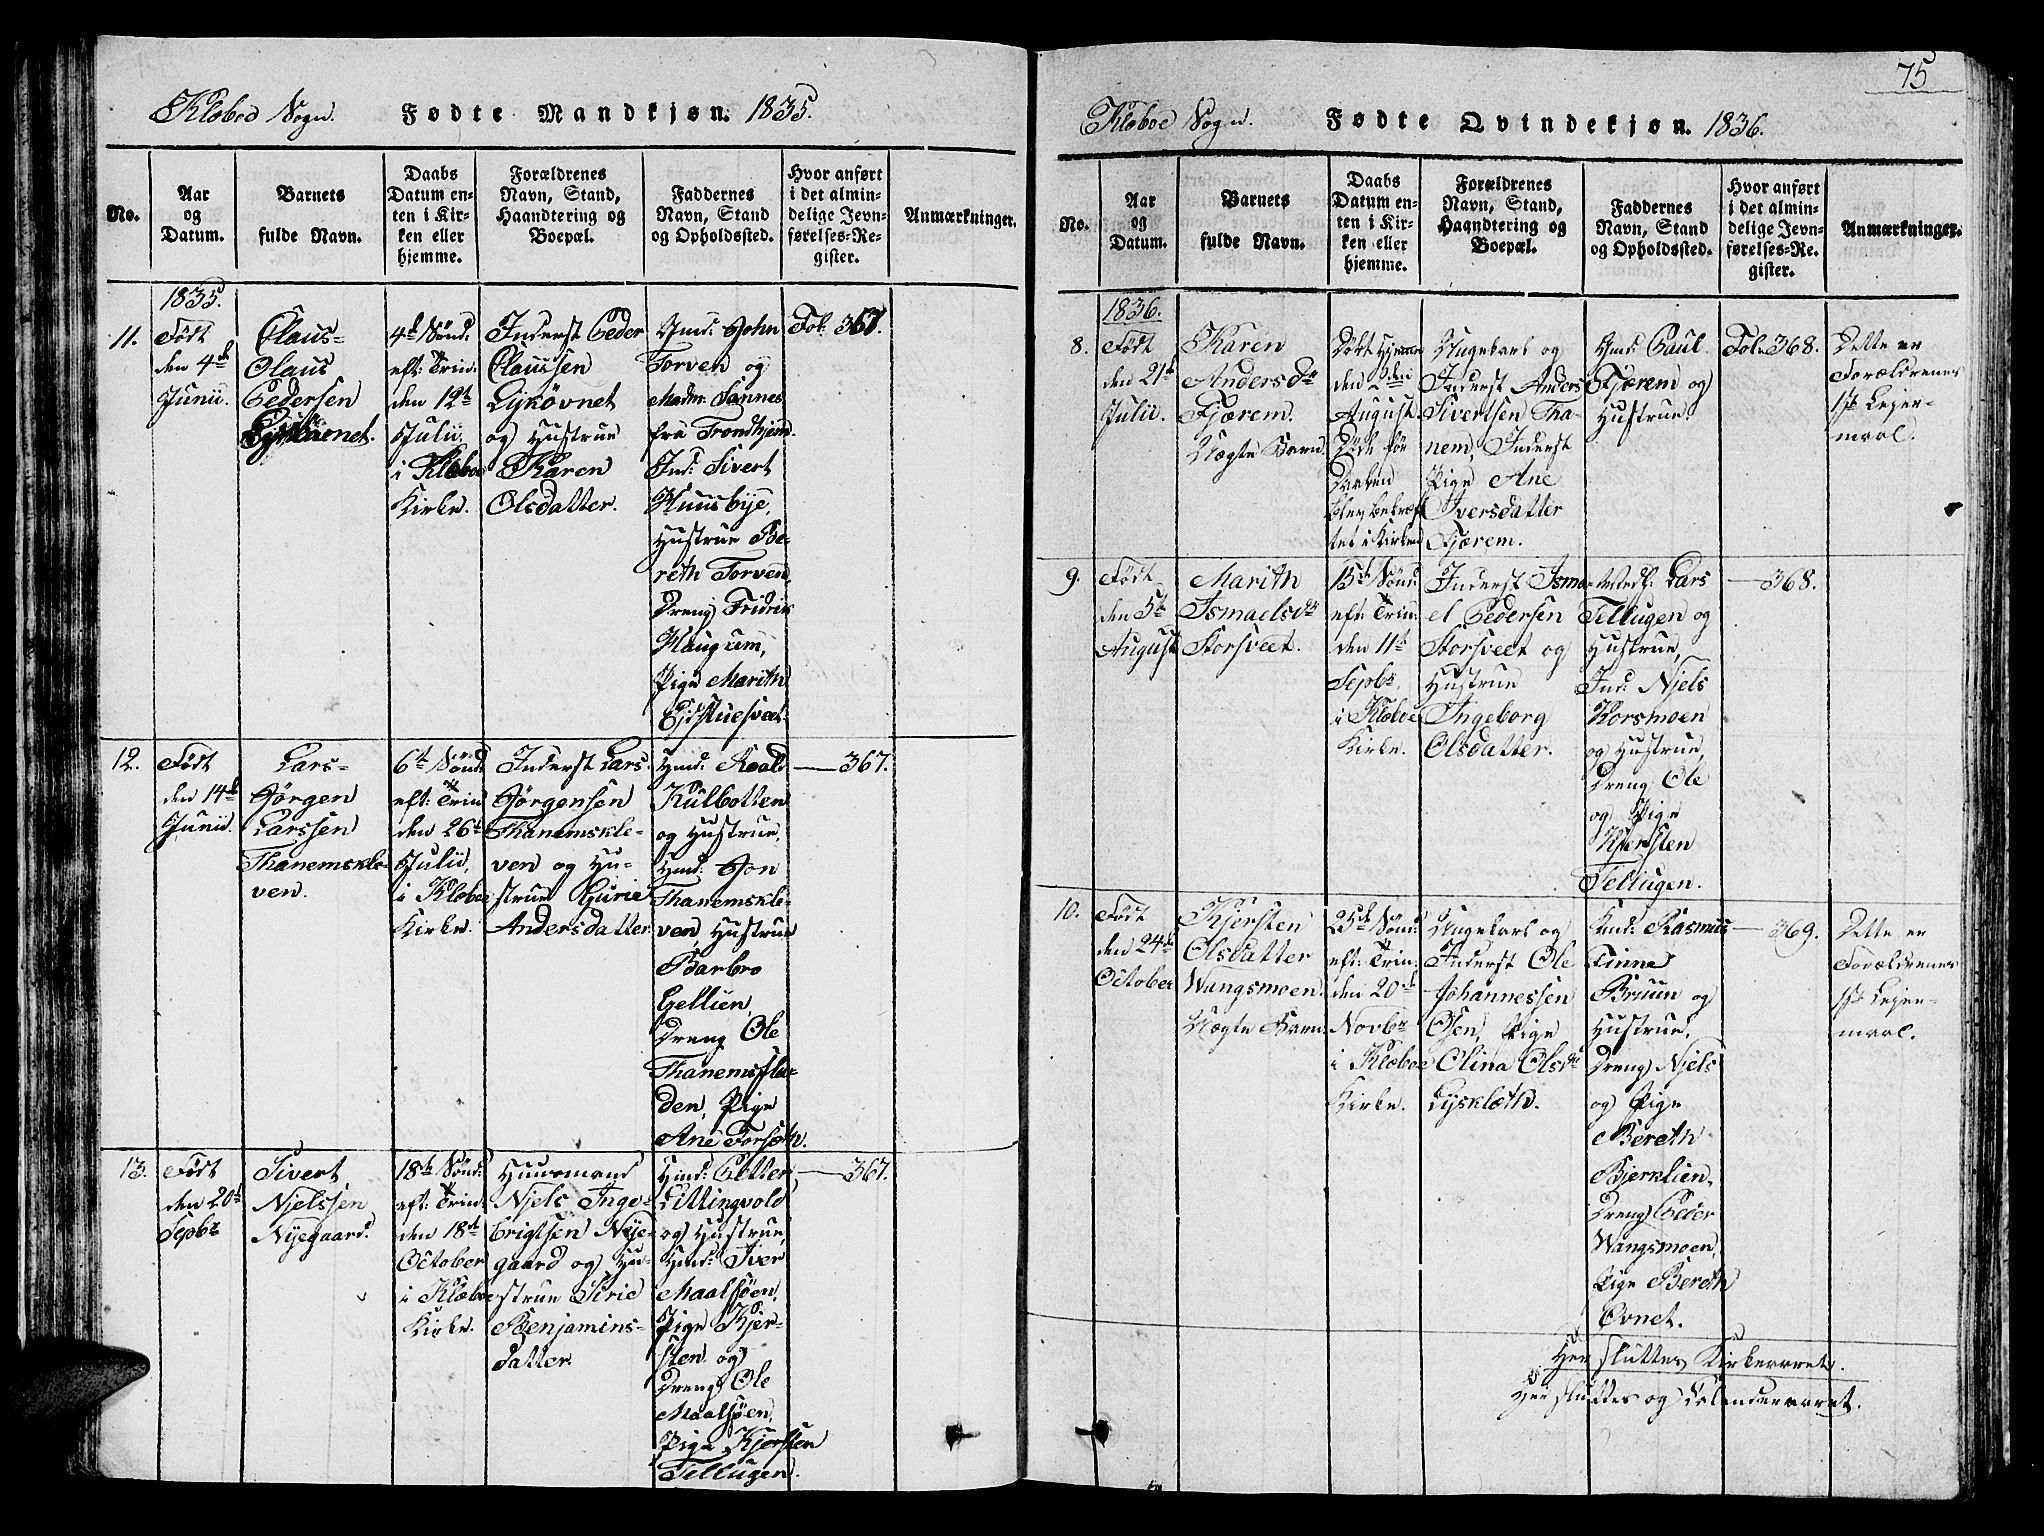 Klæboe Sogn. Fødte Mandkjøn. 1835.
No.
Aar
og
Datum.
Barnets
fulde Navn.
Daabs
Datum en-
ten i Kir-
ken eller
hjemme.
Forældrenes
Navn, Stand,
Haandtering og
Boepæl.
Faddernes
Navn, Stand
og Opholdssted.
Hvor anført
i det almin-
delige Jevn-
førelses-Re-
gister.
Anmærkninger.
1835.
11.
Født
den 4de
Junii.
Claus
Olaus
Pedersen
4de Sønd:
eft: Trin:
den 12te
Julii
i Klæboe
Kirke.
Inderst Peder
Claussen
Lysøvnet
og Hustrue
Karen
Olsdatter.
Gmd: John
Torven og
Madm: Sannes
fra Trondhjem.
Ind: Sivert
Huusbye,
Hustrue Be-
reth Torven,
Dreng Fridrik
Haugrem,
Pige Marith
Eidstuesveet.
Fol. 367.
12.
Født
den 14de
Junii.
Lars
Jørgen
Larssen
Thanemskle-
ven.
6te Sønd:
eft: Trin
den 26te
Julii,
i Klæboe
Kirke.
Inderst Lars
Jørgensen
Thanemskle-
ven og Hu-
strue Gurie
Andersdatter.
Hmd: Roald
Kulbotten
og Hustrue,
Hmd: Jon
Thanemskle-
ven, Hustrue
Barbro
Gellien,
Dreng Ole
Thanemsfla-
den, Pige
Ane Forseth.
— 367.
13.
Født
den 20de
Sepbr
Sivert
Njelssen
Nyegaard.
18de Sønd:
eft: Trin:
den 18de
October
i Klæboe
Kirke.
Huusmand
Njels Inge-
brigtsen Nye-
gaard og Hu-
strue Sirie
Benjamins-
datter.
Hmd: Petter
Littingvold
og Hustrue,
Hmd: Iver
Maalsøen,
Pige Kjer-
sten og
Dreng Ole
Maalsøen,
Pige Kjersten
Tellugen.
— 367.
75
Klæboe Sogn. Fødte Qvindekjøn. 1836.
No.
Aar
og
Datum.
Barnets
fulde Navn.
Daabs
Datum en-
ten i Kir-
ken eller
hjemme.
Forældrenes
Navn, Stand,
Haandtering og
Boepæl.
Faddernes
Navn, Stand
og Opholdssted.
Hvor anført
i det almin-
delige Jevn-
førelses-Re-
gister.
Anmærkninger.
1836.
8.
Født
den 21de
Julii.
Karen
Andersdr
Fjærem.
Uægte Barn.
Døbt hjemme
den 2den
August.
Døde før
Daaben
blev bekræf
tet i Kirken
Ungekarl og
Inderst Anders
Sivertsen Tha-
nem, Inderst
Pige Ane
Iversdatter
Fjærem.
Gmd: Paul
Fjærem og
Hustrue.
Fol. 368.
Dette er
Forældrenes
1ste Lejer-
maal.
9.
Født
den 5te
August
Marith
Ismaelsdr
Storsveet.
15de Sønd:
eft: Trin:
den 11te
Sepbr,
i Klæboe
Kirke.
Inderst Isma-
el Pedersen
Storsveet og
Hustrue
Ingeborg
Olsdatter.
Lars
Tellugen og
Hustrue,
Ind: Njels
Korsmoen
og Hustrue,
Dreng Ole
og Pige
Kjersten
Tellugen.
— 368.
10.
Født
den 24de
October
Kjersten
Olsdatter
Wangsmoen.
Uægte Barn.
25de Sønd:
eft: Trin:
den 20de
Novbr
i Klæboe
Kirke.
Ungekarl og
Inderst Ole
Johannessen
Osen, Pige
Olina Olsdr
Lyskleth.
Rasmus
Finne
Bruun og
Hustrue,
Dreng Njels
og Pige
Bereth
Bjerklien,
Dreng Peder
Wangsmoen,
Pige Bereth
Ovnet.
— 369.
Dette er
Forældrenes
1ste Lejer-
maal.
Her sluttes Kirkeaaret.
Her sluttes og Calenderaaret.